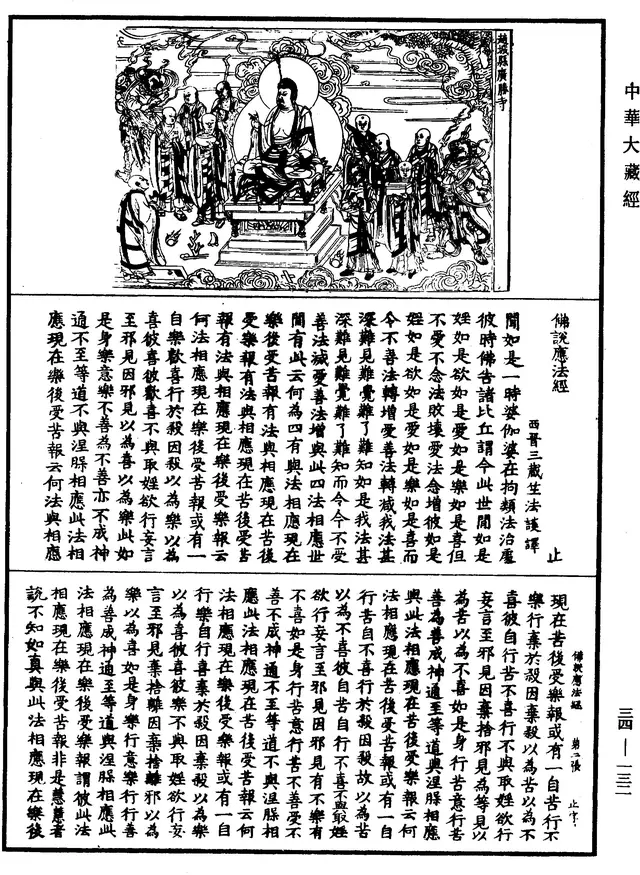 中華大藏經
趙城縣廣勝寺
佛說應法經
西晉三藏生法護譯
止
聞如是一時婆伽婆在拘類法治處
彼時佛告諸比丘謂今此世間如是
婬如是欲如是愛如是樂如是喜但
不受不念法敗壞愛法念增彼如是
婬如是欲如是愛如是樂如是喜而
今不善法轉增愛善法轉減我法甚
深難見難覺難了難知如是我法甚
深難見難覺難了難知而今令不受
善法減受善法增與此四法相應世
間有此云何為四有與法相應現在
樂後受苦報有法與相應現在苦後
受樂報有法與相應現在苦後受苦
報有法與相應現在樂後受樂報云
何法相應現在樂後受苦報或有一
自樂歡喜行於殺因殺以為樂以為
喜彼喜彼歡喜不與取婬欲行妄言
至邪見因邪見以為喜以為樂此如
是身樂意樂不善為不善亦不成神
通不至等道不與涅槃相應此法相
應現在樂後受苦報云何法與相應
現在苦後受樂報或有一自苦行不
樂行棄於殺因棄殺以為苦以為不
喜彼自行苦不喜行不與取婬欲行
妄言至邪見因棄捨邪見為等見以
為苦以為不喜如是身行苦意行苦
善為善成神通至等道與涅槃相應
與此法相應現在苦後受樂報云何
法相應現在苦後受苦報或有一自
行苦自不喜行於殺因殺故以為苦
以為不喜彼自苦自行不喜不與取婬
欲行妄言至邪見因邪見有不樂有
不喜如是身行苦意行苦不善受不
善不成神通不至等道不與涅槃相
應此法相應現在苦後受苦報云何
法相應現在樂後受樂報或有一自
行樂自行喜棄於殺因棄殺以為樂
以為喜彼喜彼樂不與取婬欲行妄
言至邪見棄捨離因棄捨離邪以為
樂以為喜如是身樂行意樂行行善
為善成神通至等道與涅槃相應此
法相應現在樂後受樂報謂彼此法
相應現在樂後受苦報非是慧慧者
說不知如真與此法相應現在樂後
佛說應法經 第二張 止字
三四—一三二